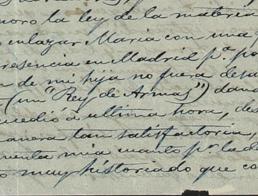 noro la ley de la materia
enlazar Maria con una
resencia en Madrid pª. po
n de mi hija no fuera de
(un "Rey de Armas") dan
medio a ultima hora, de
anera tan satisfactoria,
enta mia cuanto por la d
o muy historiado que co